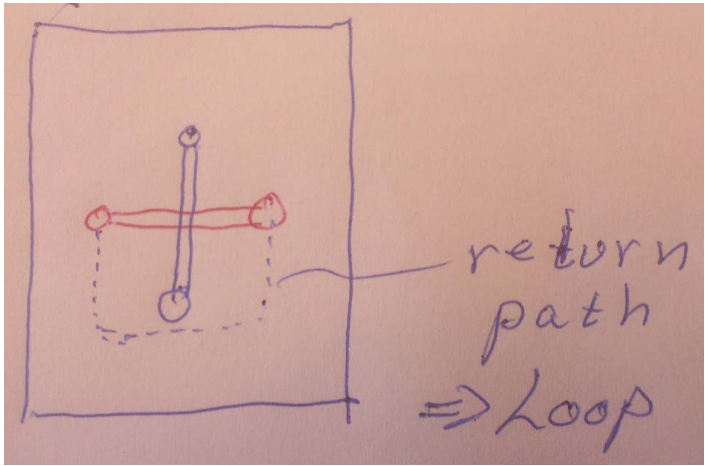 return
path
=> Loop